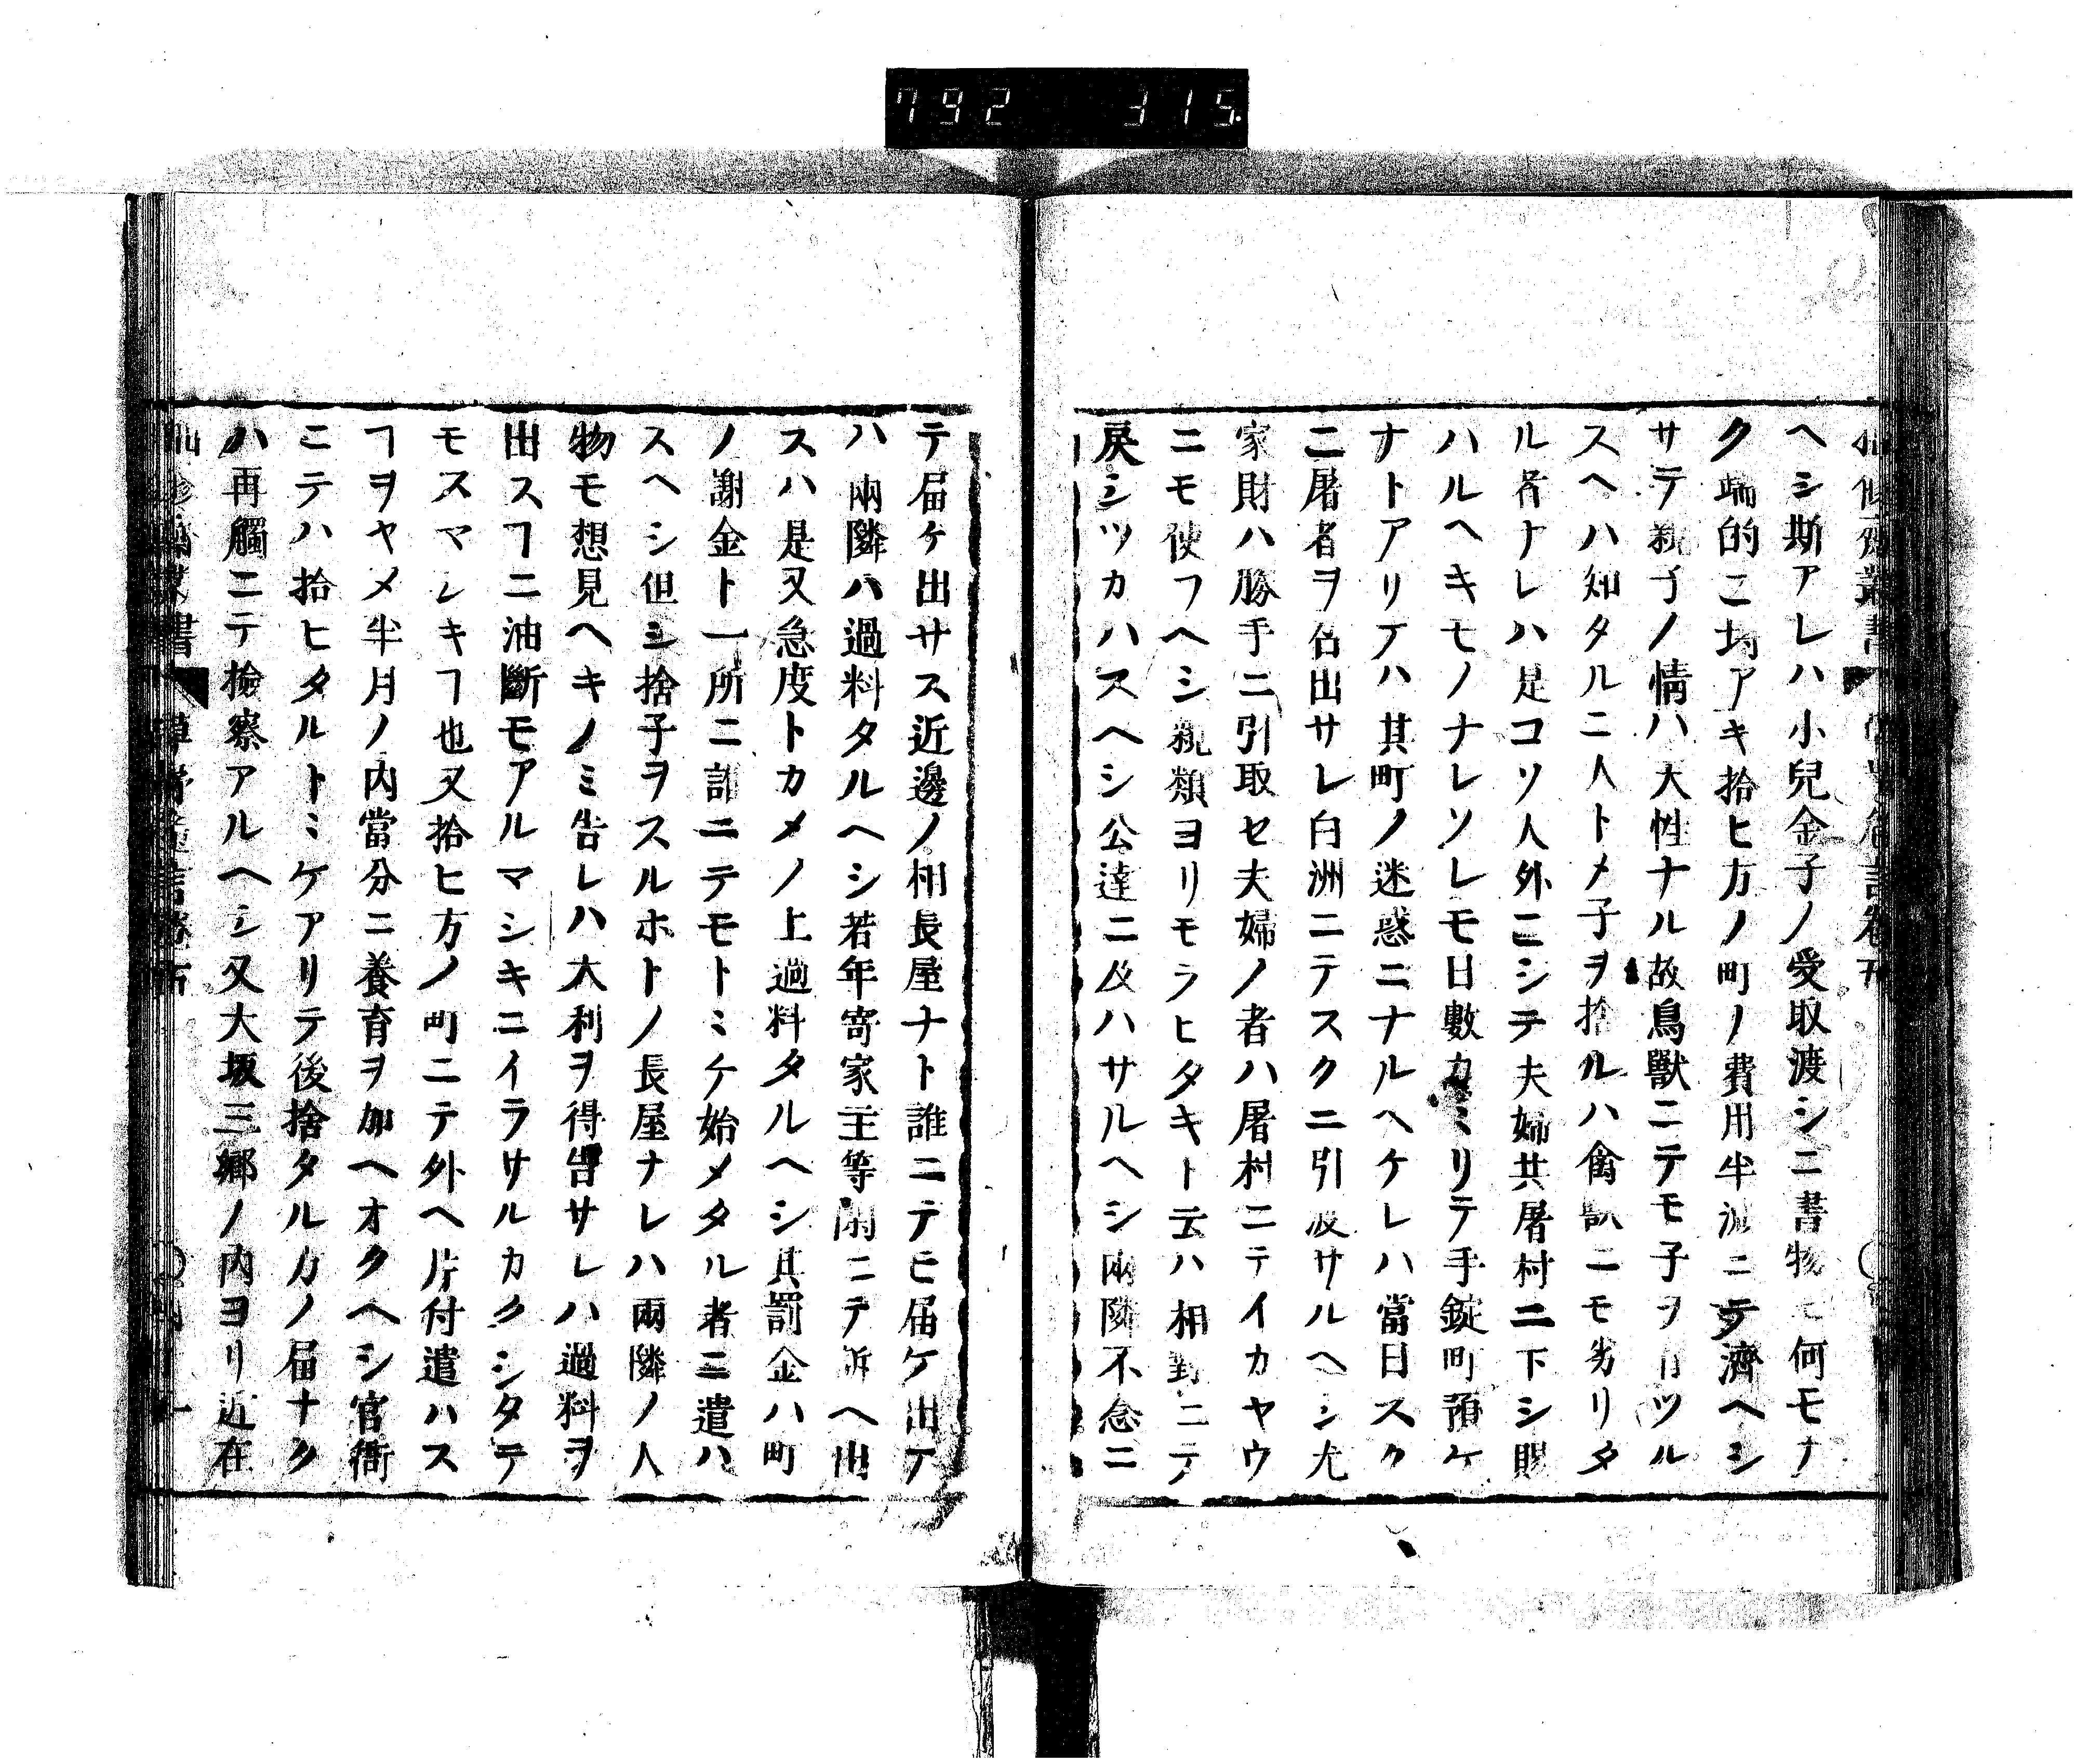 792 315
ヘシ斯アレハ小兒金子ノ愛取渡シニ書物モ何モナ
ク端的ニ埒アキ拾ヒ方ノ町ノ費用半減ニテ濟ヘシ
サテ親子ノ情ハ大性ナル故鳥獸ニテモ子ヲ育ツル
スヘハ知タルニ人トメ子ヲ捨ルハ禽獸ニモ劣リタ
ル者ナレハ是コソ人外ニシテ夫婦共屠村ニ下シ賜
ハルヘキモノナレソレモ日數カヽミリテ手錠町預ケ
ナトアリテハ其町ノ迷惑ニナルヘケレハ當日スク
ニ屠者ヲ召出サレ白洲ニテスクニ引渡サルヘシ尤
家財ハ勝手ニ引取セ夫婦ノ者ハ屠村ニテイカヤウ
ニモ使フヘシ親類ヨリモラヒタキト云ハ相對ニテ
戾シツカハスヘシ公達ニ及ハサルヘシ兩隣不念ニ
テ届ケ出サス近邊ノ相長屋ナト誰ニテモ届ケ出テ
ハ兩隣ハ過料タルヘシ若年寄家主等閑ニテ訴ヘ出
スハ是又急度トカメノ上過料タルヘシ其罰金ハ町
ノ謝金ト一所ニ誰ニテモトミケ始メタル者ニ遣ハ
スヘシ但シ捨子ヲスルホトノ長屋ナレハ兩隣ノ人
物モ想見ヘキノミ告レハ大利ヲ得告サレハ過料ヲ
出スヿニ油斷モアルマシキニイラサルカクシタテ
モスマシキヿ也又拾ヒ方ノ町ニテ外ヘ片付遣ハス
ヿヲヤメ半月ノ内當分ニ養育ヲ加ヘオクヘシ官衙
ニテハ拾ヒタルトミケアリテ後捨タル方ノ届ナク
ハ再觸ニテ檢察アルヘシ又大坂三鄉ノ内ヨリ近在